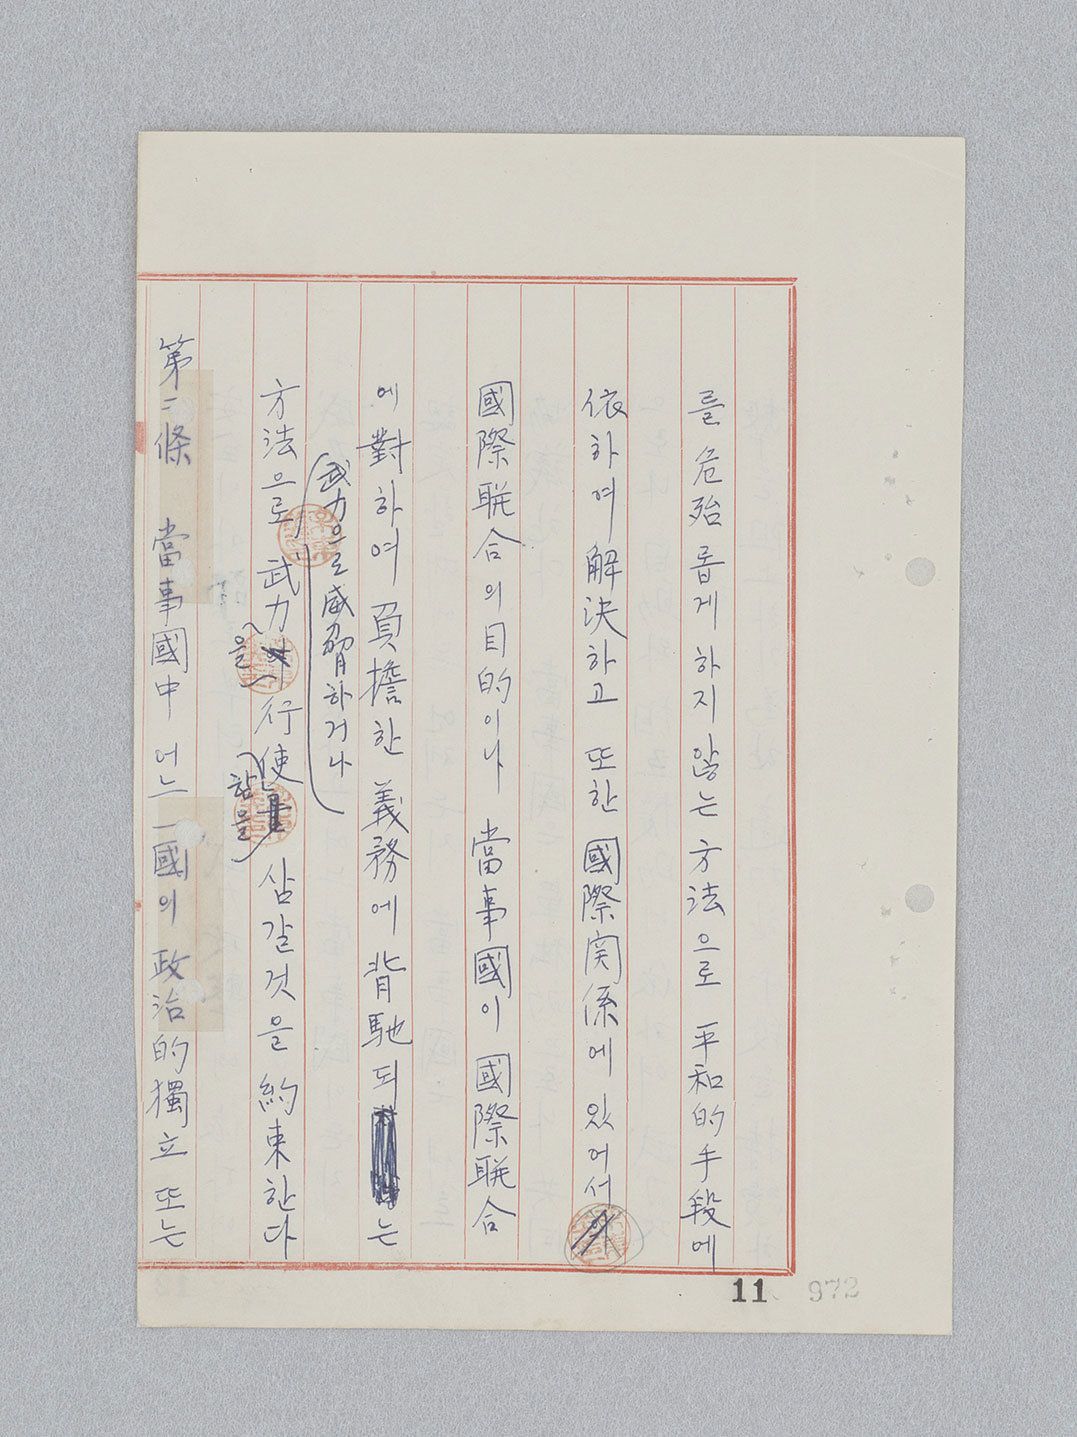 를 危殆롭게 하지 않는 方法으로 平和的手段에
依하여 解決하고 또한 國際関係에 있어서
國際联合의 目的이나 當事國이 國際联合
에 對하여 負擔한 義務에 背馳되는
武力으로 威脅하거나
方法으로 武力 行使 삼갈것을 約束한다
을
함을
第二條 當事國中 어느 一國의 政治的獨立 또는
11 972